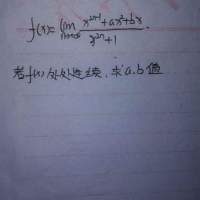 f(x)=lim n→∞ (x^{2n-1}+ax²+bx)/(x^{2n}+1).
若f(x)处处连续,求a.b值